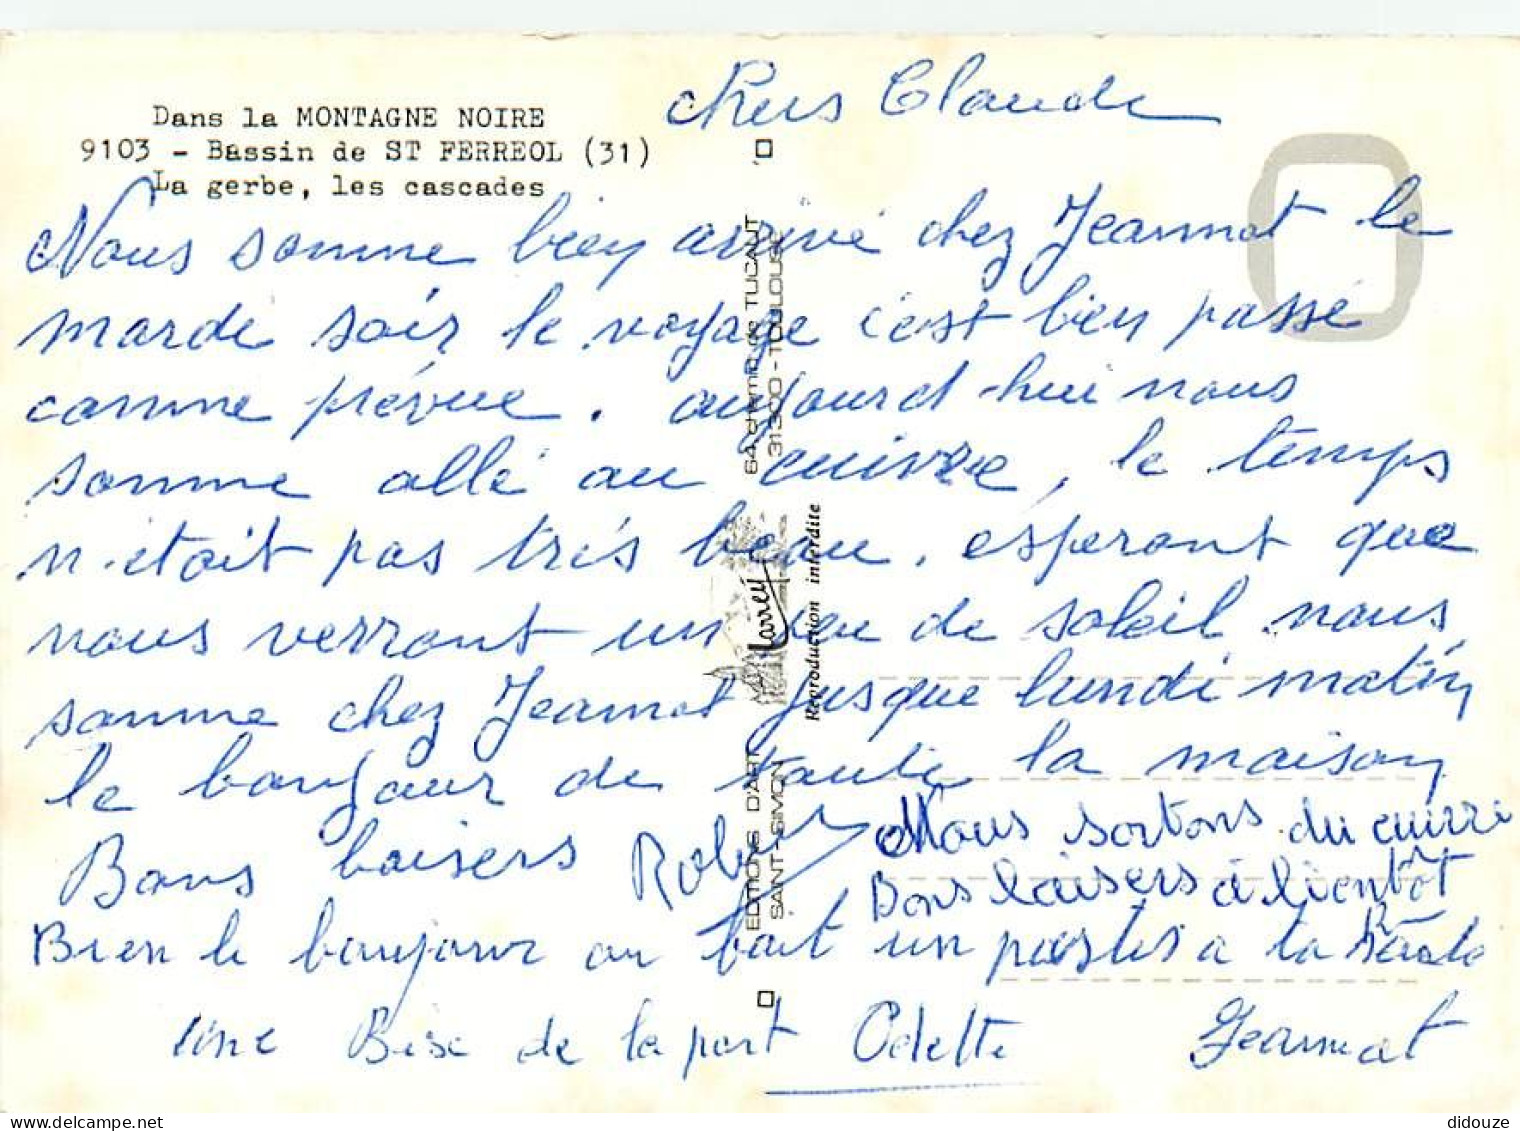 Dans la MONTAGNE NOIRE
9103 - Bassin de ST FERREOL (31)
La gerbe, les cascades
chers Claude
Nous somme bien arrivé chez Jeannot le
mardi soir le voyage c'est bien passé
comme prévue. aujourd-hui nous
somme allé au cuivre, le temps
n'était pas très beau, ésperont que
nous verront un peu de soleil nous
somme chez Jeannot jusque lundi matin
le bonjour de toute la maison
Bons baisers Robert
Nous sortons du cuivre
Bons baisers à bientôt
Bien le bonjour on boit un pastis a ta santé
une Bise de la part Odette Jeannot
EDITIONS D'ART
SAINT-SIMON
Larrey
Reproduction interdite
64, chemin de TUCAUT
31300 - TOULOUSE
didouze